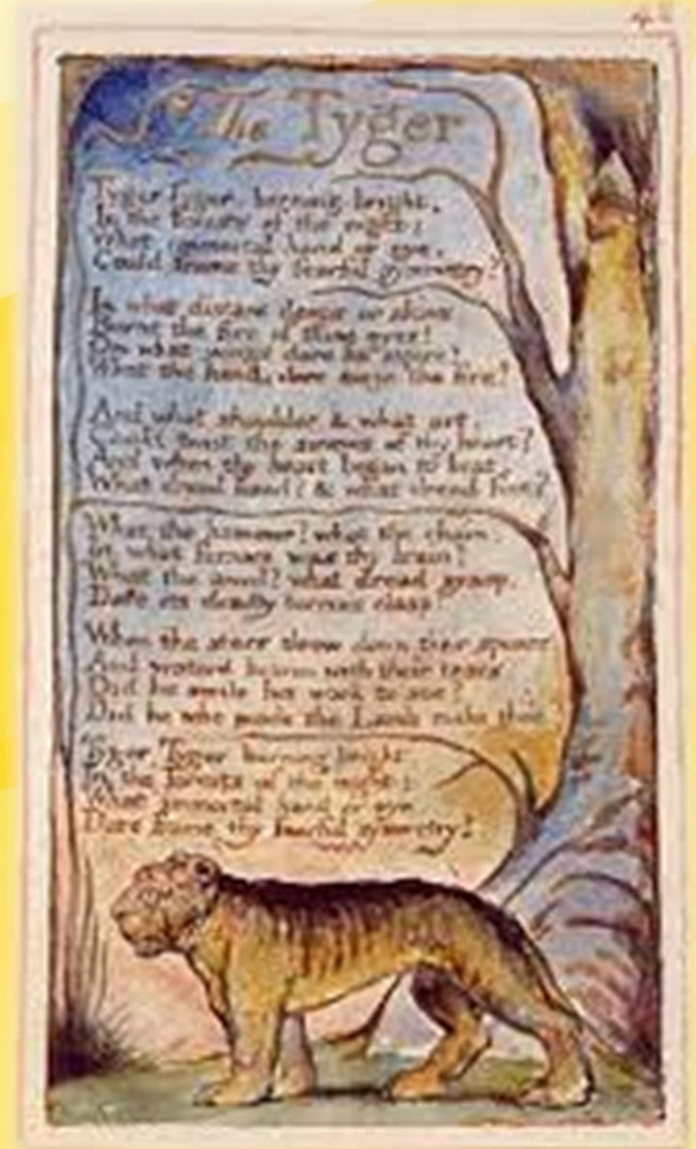 42
The Tyger
Tyger Tyger, burning bright,
In the forests of the night;
What immortal hand or eye,
Could frame thy fearful symmetry?
In what distant deeps or skies
Burnt the fire of thine eyes?
On what wings dare he aspire?
What the hand, dare seize the fire?
And what shoulder, & what art,
Could twist the sinews of thy heart?
And when thy heart began to beat,
What dread hand? & what dread feet?
What the hammer? what the chain,
In what furnace was thy brain?
What the anvil? what dread grasp,
Dare its deadly terrors clasp!
When the stars threw down their spears
And water'd heaven with their tears:
Did he smile his work to see?
Did he who made the Lamb make thee?
Tyger Tyger burning bright,
In the forests of the night:
What immortal hand or eye,
Dare frame thy fearful symmetry?